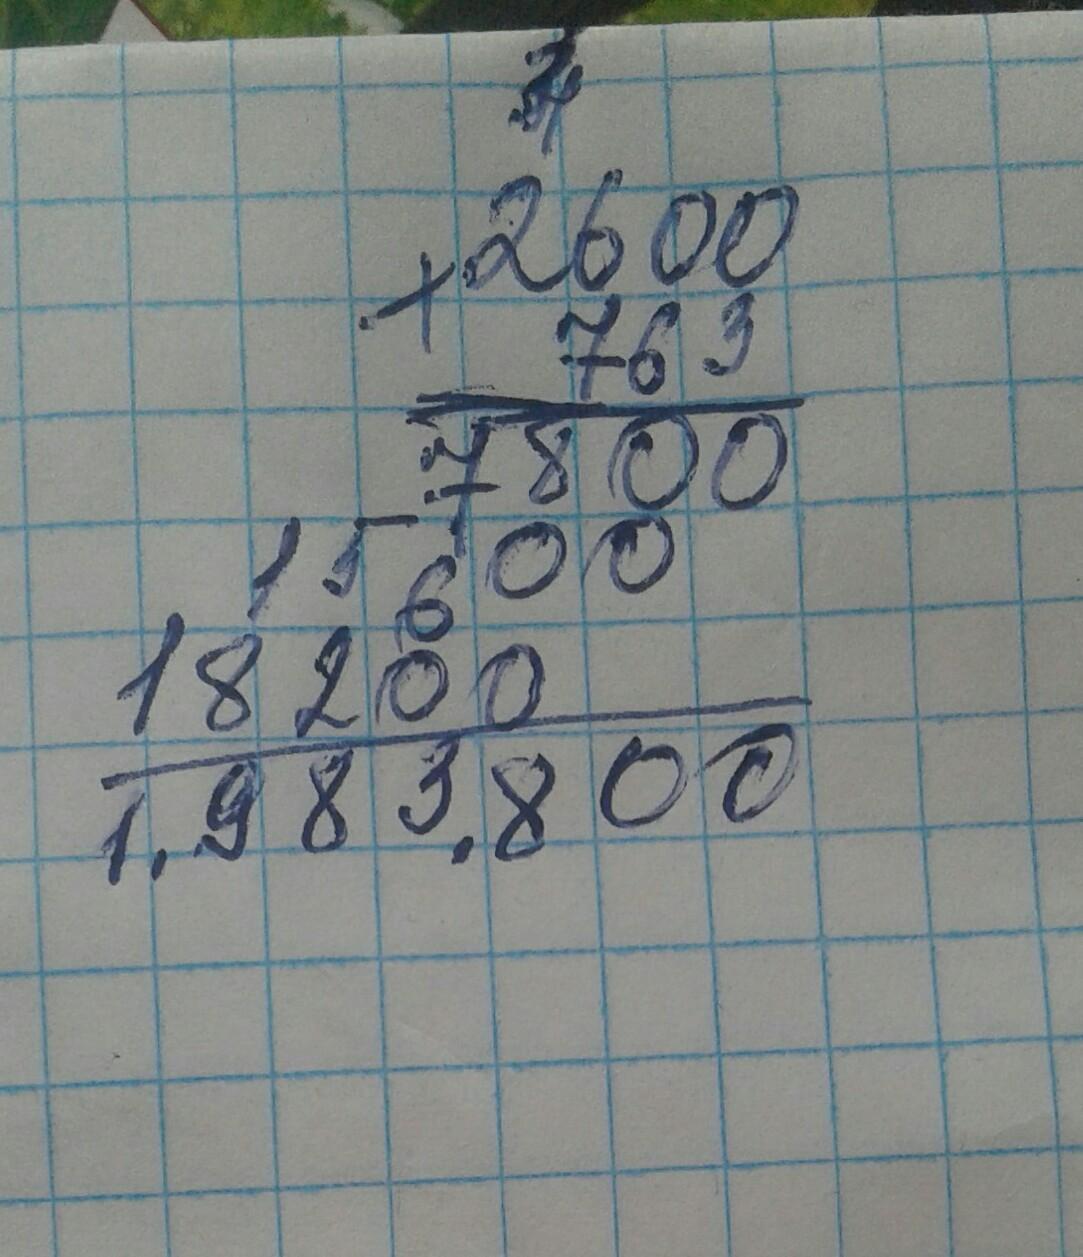 2600
+ 763
7800
15600
18200
1.983.800